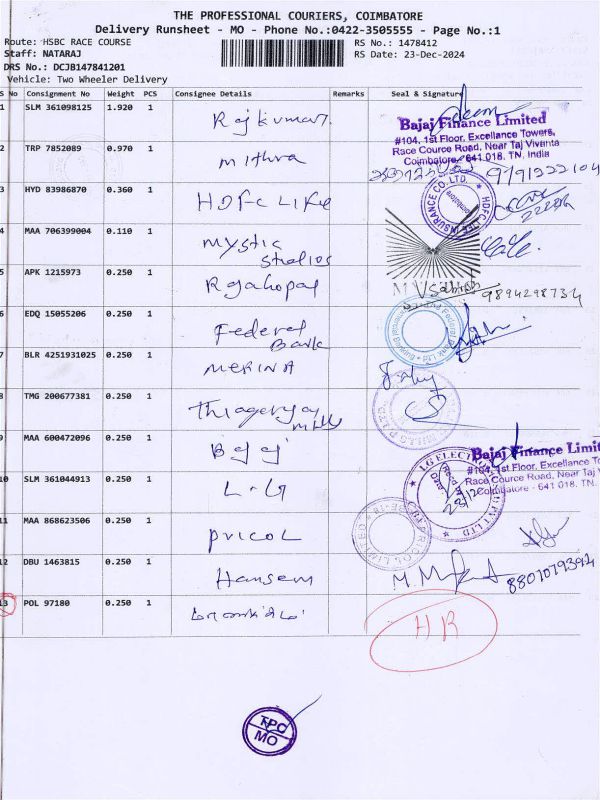 THE PROFESSIONAL COURIERS, COIMBATORE
Delivery Runsheet - MO - Phone No.:0422-3505555 - Page No.:1
Route: HSBC RACE COURSE
RS No.: 1478412
Staff: NATARAJ
RS Date: 23-Dec-2024
DRS No.: DCJB147841201
Vehicle: Two Wheeler Delivery
S No Consignment No Weight PCS Consignee Details Remarks Seal & Signature
1 SLM 361098125 1.920 1 Rajkumar.
Bajaj Finance Limited
#104, 1st Floor, Excellance Towers,
Race Cource Road, Near Taj Vivanta
Coimbatore- 641 018. TN, India
2 TRP 7852089 0.970 1 Mithra
9791322104
3 HYD 83986870 0.360 1 HDFC LIFE
HDFC LIFE INSURANCE CO. LTD.
4 MAA 706399004 0.110 1 Mystic
Studios
5 APK 1215973 0.250 1 Rajahopal
9894298734
6 EDQ 15055206 0.250 1 Federal
Bank
7 BLR 4251931025 0.250 1 MERINA
8 TMG 200677381 0.250 1 Thiagaraja
Mills
9 MAA 600472096 0.250 1 Bajaj
Bajaj Finance Limit
#104, 1st Floor, Excellance To
Race Cource Road, Near Taj V
Coimbatore - 641 018. TN.
10 SLM 361044913 0.250 1 L-G
LG ELECTR PVT LTD
11 MAA 868623506 0.250 1 PRICOL
PRICOL LIMITED
12 DBU 1463815 0.250 1 Hansem
13 POL 97180 0.250 1
HR
TPC
MO